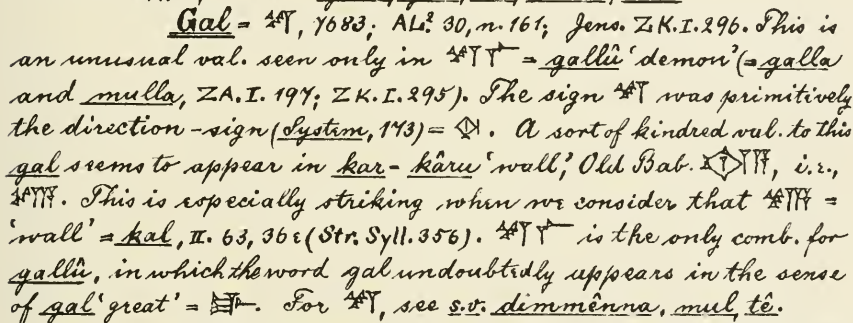 Gal = 𒋼, 7683; AL.² 30, n. 161; Jens. ZK. I. 296. This is
an unusual val. seen only in 𒋼𒇲 = gallû 'demon' (= galla
and mulla, ZA. I. 197; ZK. I. 295). The sign 𒋼 was primitively
the direction-sign (System, 173) = . A sort of kindred val. to this
gal seems to appear in kar - kâru 'wall,' Old Bab. , i.e.,
𒋼𒀀. This is especially striking when we consider that 𒋼𒀀 =
'wall' = kal, II. 63, 36ε (Str. Syll. 356). 𒋼𒇲 is the only comb. for
gallû, in which the word gal undoubtedly appears in the sense
of gal 'great' = 𒃲. For 𒋼, see s.v. dimmênna, mul, tê.